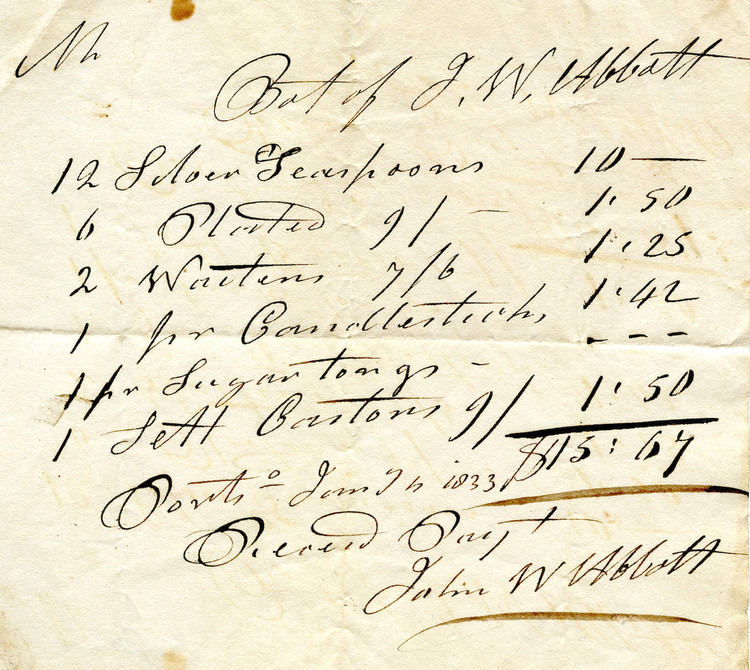 Mr
Bot of J. W. Abbott
12 Silver Teaspoons 10 —
6 Plated 9/ — 1.50
2 Waiters 7/6 1.25
1 pr Candlesticks 1.42
1 pr Sugar tongs - - - -
1 Sett Castors 9/ 1.50
$15:67
Ports o Jany 1833
Received Payt
John W Abbott